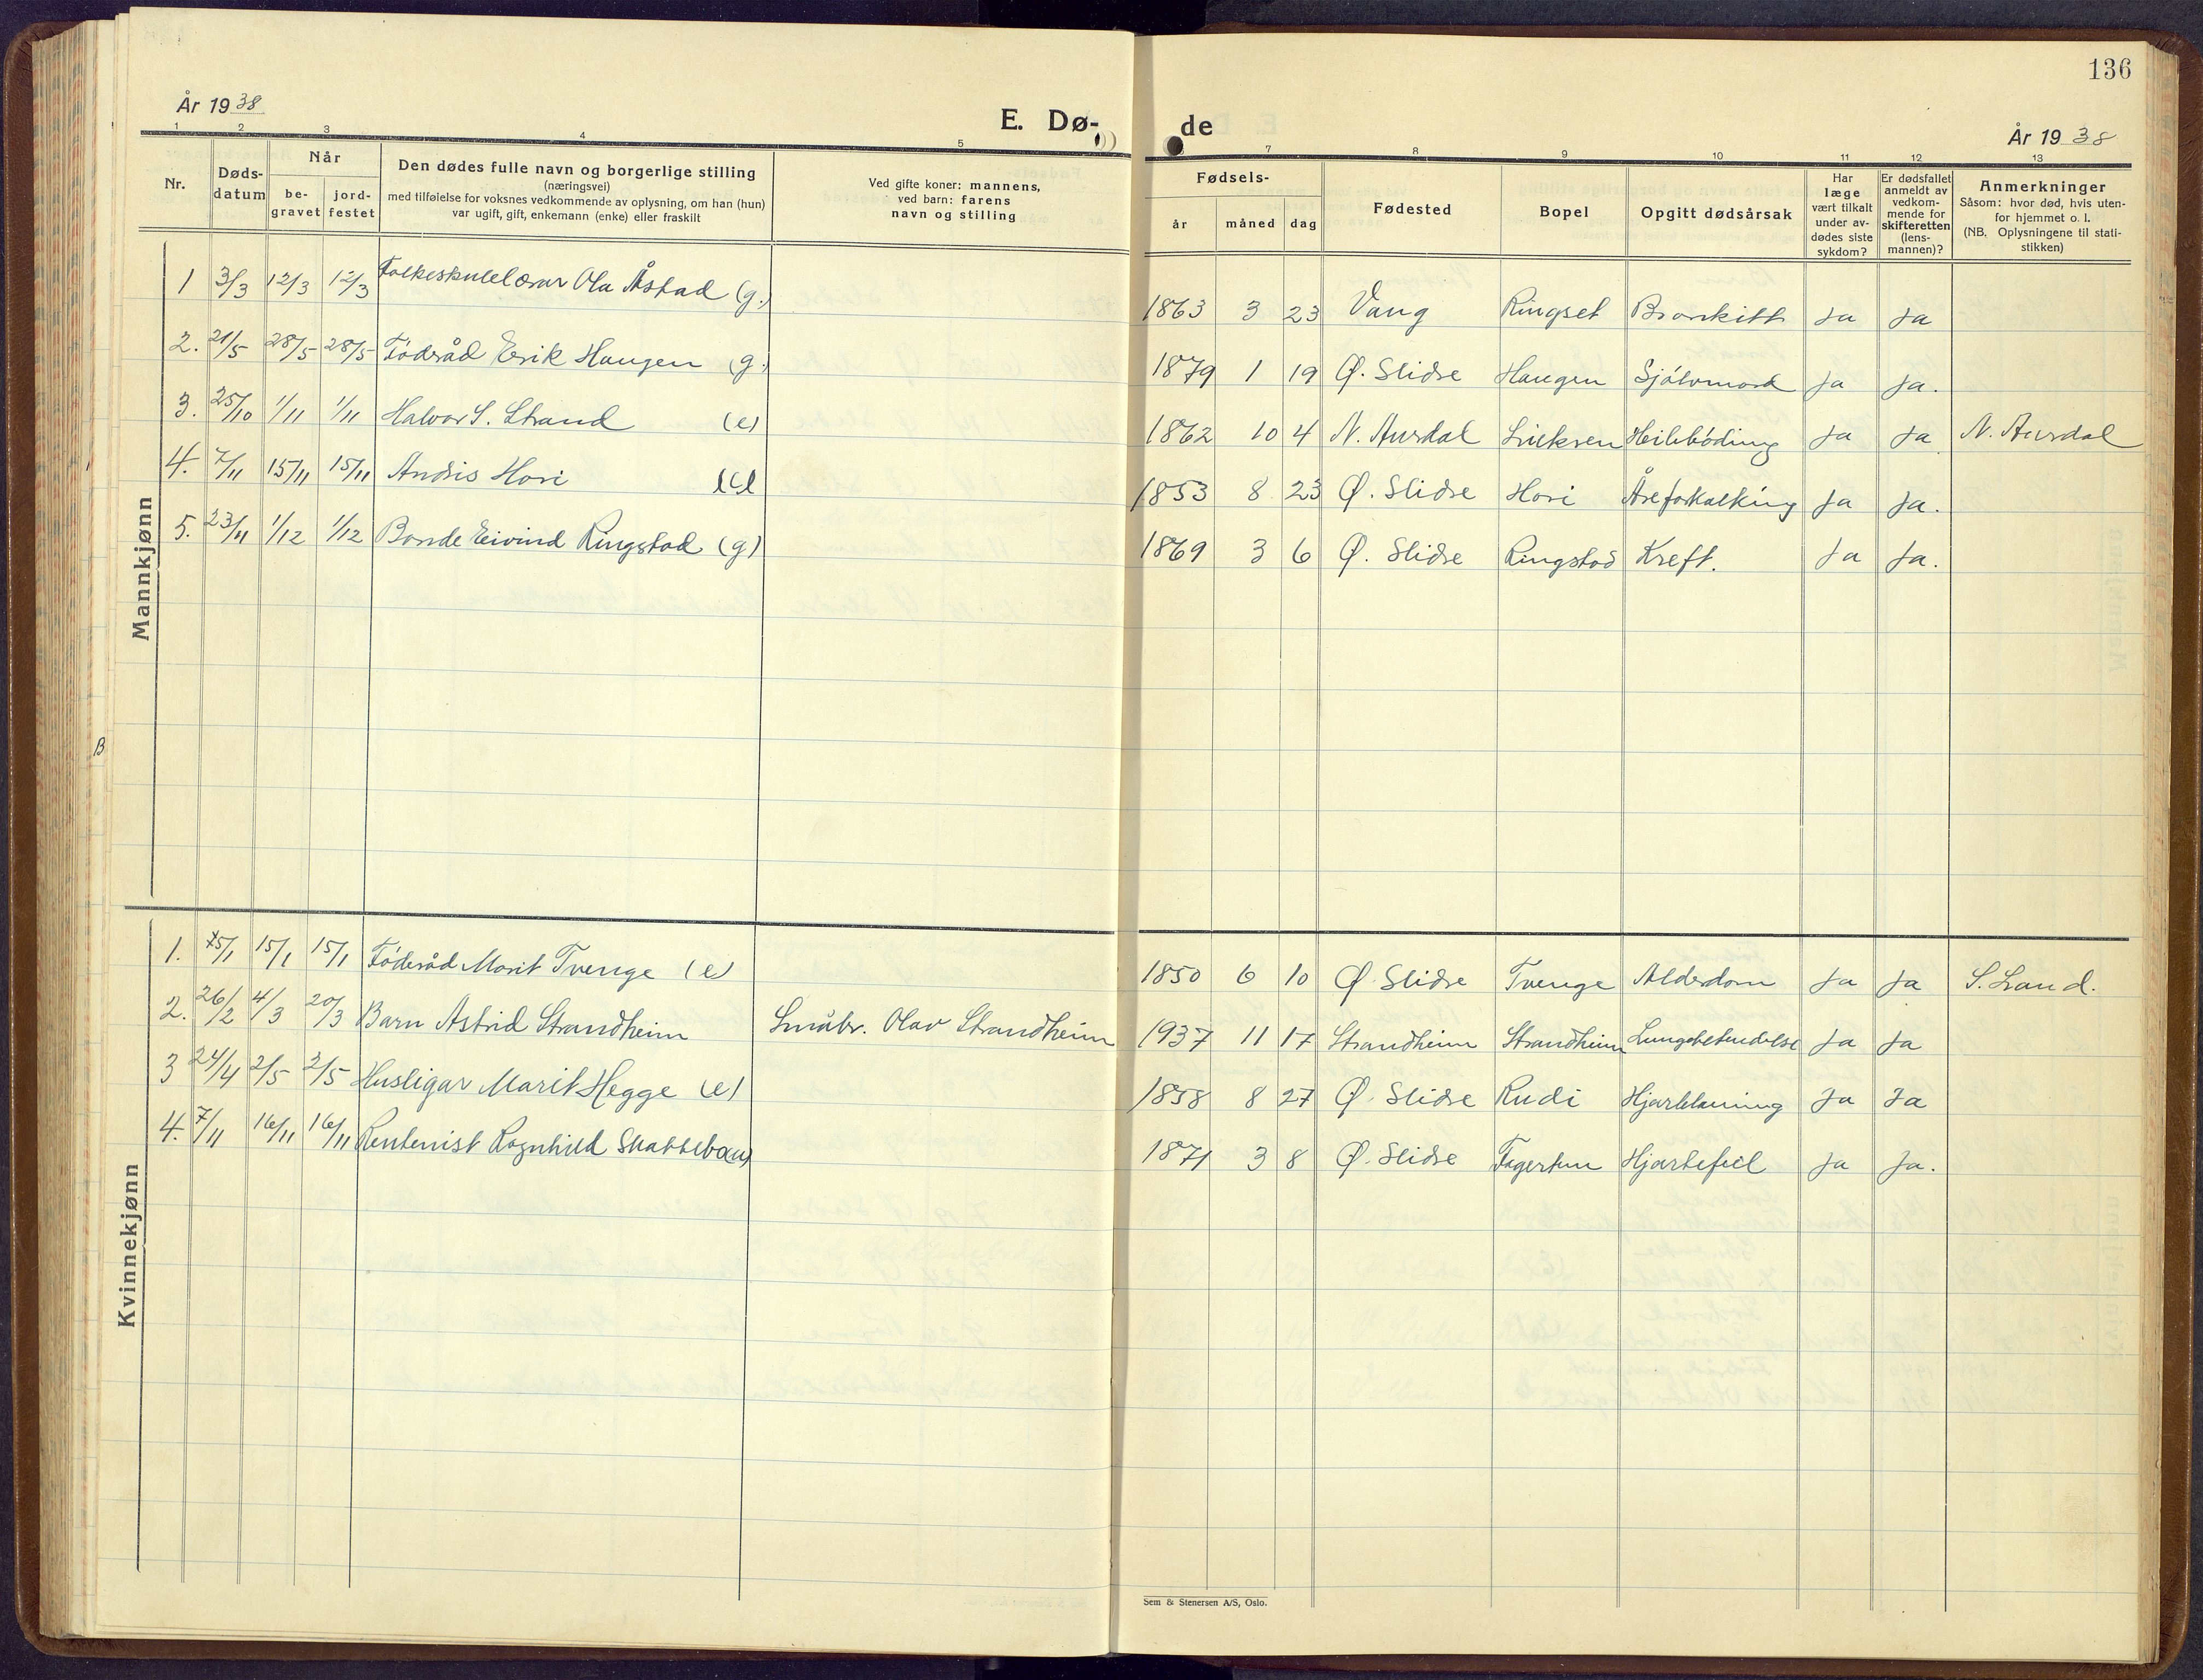 136
År 1938
E. Dø-
de
År 1938
1 2 3 4 5 7 8 9 10 11 12 13
Nr.
Døds-
datum
Når
be-
gravet
jord-
festet
Den dødes fulle navn og borgerlige stilling
(næringsvei)
med tilføielse for voksnes vedkommende av oplysning, om han (hun)
var ugift, gift, enkemann (enke) eller fraskilt
Ved gifte koner: mannens,
ved barn: farens
navn og stilling
Fødsels-
år måned dag
Fødested
Bopel
Opgitt dødsårsak
Har
læge
vært tilkalt
under av-
dødes siste
sykdom?
Er dødsfallet
anmeldt av
vedkom-
mende for
skifteretten
(lens-
mannen)?
Anmerkninger
Såsom: hvor død, hvis uten-
for hjemmet o. l.
(NB. Oplysningene til stati-
stikken)
Mannkjønn
1 3/3 12/3 12/3 Folkeskulelærar Ola Åstad (g.) 1863 3 23 Vang Ringset Bronkitt Ja Ja
2. 21/5 28/5 28/5 Föderåd Eirik Haugen (g. 1879 1 19 Ø. Slidre Haugen Sjölvmord Ja Ja.
3. 25/10 1/11 1/11 Halvor S. Strand (e) 1862 10 4 N. Aurdal Heileblöding Ja Ja N. Aurdal
4. 7/11 15/11 15/11 Andris Hovi 1853 8 23 Ø. Slidre Hovi Åreforkalking Ja Ja.
5. 23/11 1/12 1/12 Bonde Eivind Ringstad (g) 1869 3 6 Ø. Slidre Ringstad Kreft. Ja Ja.
B
Kvinnekjønn
1. 5/1 15/1 15/1 Föderåd Marit Tvenge (e) 1850 6 10 Ø. Slidre Tvenge Alderdom Ja Ja S. Land.
2. 26/2 4/3 20/3 Barn Astrid Strandheim Småbr. Olav Strandheim 1937 11 17 Strandheim Strandheim Lungebetendelse Ja Ja
3 24/4 2/5 2/5 Husligar Marit Hegge (e) 1858 8 27 Ø. Slidre Rudi Hjartelaming Ja Ja
4. 7/11 16/11 16/11 Rentenist Ragnhild Skattebo (u) 1871 3 8 Ø. Slidre Fagertun Hjartefeil Ja Ja.
Sem & Stenersen A/S, Oslo.